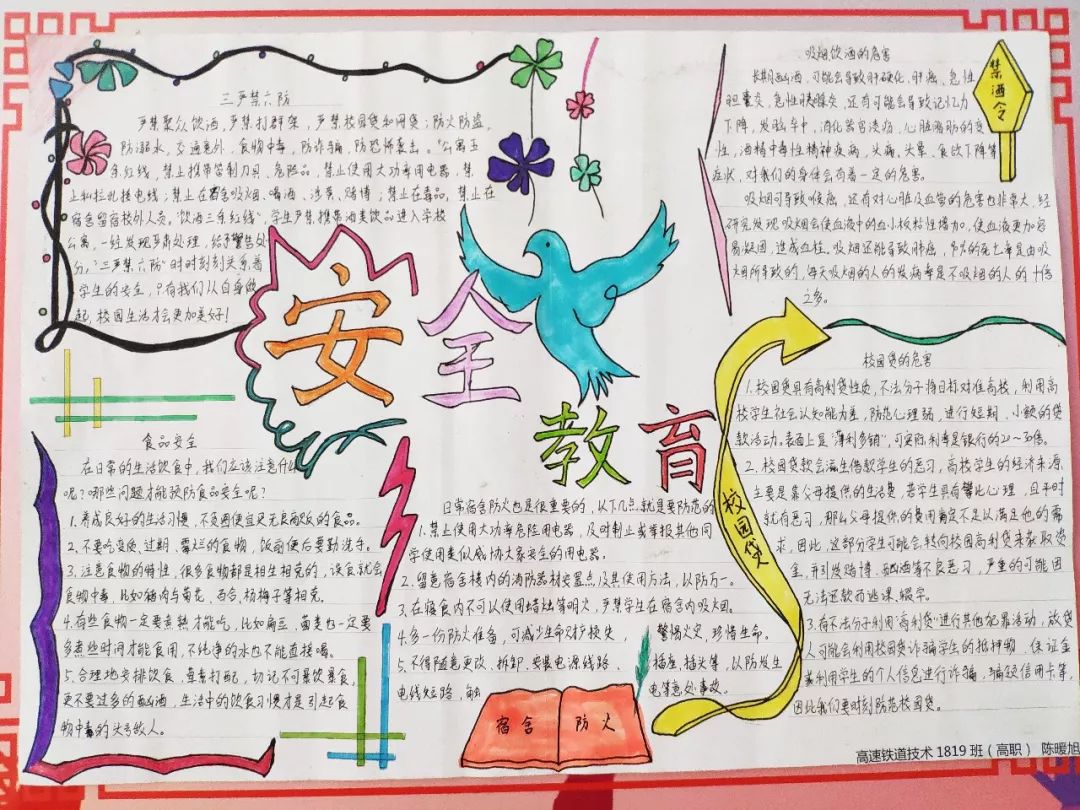 三严禁六防
严禁聚众饮酒,严禁打群架,严禁校园贷和网贷;防火防盗,
防溺水,交通意外,食物中毒,防诈骗,防恐怖袭击。"公寓五
条红线,禁止携带管制刀具、危险品,禁止使用大功率用电器,禁
止私拉乱接电线;禁止在宿舍吸烟、喝酒、涉黄、赌博;禁止在毒品,禁止在
宿舍留宿校外人员,"饮酒三条红线",学生严禁携带酒类饮品进入学校
公寓,一经发现严肃处理,给予警告处
分,"三严禁六防"时时刻刻关系着
学生的安全,只有我们从自身做
起,校园生活才会更加美好!
安全
教育
吸烟饮酒的危害
长期酗酒,可能会导致肝硬化,肝癌、急性
胆囊炎、急性胰腺炎,还有可能会导致记忆力
下降,发脑卒中,消化器官溃疡,心脏脂肪的变
性,酒精中毒性精神疾病,头痛、头晕、食欲下降等
症状,对我们的身体会有着一定的危害。
吸烟可导致喉癌,还有对心脏及血管的危害也非常大,经
研究发现吸烟会使血液中的血小板粘性增加,使血液更加容
易凝固,造成血栓。吸烟还能导致肺癌,的死亡率是由吸
烟所导致的,每天吸烟的人的发病率是不吸烟的人的十倍
之多。
禁酒令
校园贷的危害
1.校园贷具有高利贷性质,不法分子将目标对准高校,利用高
校学生社会认知能力差,防范心理弱,进行短期、小额的贷
款活动。表面上是"薄利多销",可实际利率是银行的20~30倍。
2.校园贷款会滋生借款学生的恶习,高校学生的经济来源
主要是靠父母提供的生活费,若学生具有攀比心理,且平时
就有恶习,那么父母提供的费用肯定不足以满足他的需
求,因此,这部分学生可能会转向校园高利贷来获取资
金,并引发赌博、酗酒等不良恶习,严重的可能因
无法还款而逃课、辍学。
3.有不法分子利用"高利贷"进行其他犯罪活动,放贷
人可能会利用校园贷诈骗学生的抵押物、保证金
或利用学生的个人信息进行诈骗,骗领信用卡等,
因此我们要时刻防范校园贷。
校园贷
食品安全
在日常的生活饮食中,我们应该注意什么
呢?哪些问题才能预防食品安全呢?
1.养成良好的生活习惯,不贪图便宜买无良商贩的食品。
2.不要吃变质、过期、霉烂的食物,饭前便后要勤洗手。
3.注意食物的特性,很多食物都是相生相克的,误食就会
食物中毒,比如猪肉与菊花,百合、杨梅子等相克。
4.有些食物一定要煮熟才能吃,比如扁豆,菌类也一定要
多煮些时间才能食用,不纯净的水也不能直接喝。
5.合理地安排饮食,荤素打配,切记不可暴饮暴食,
更不要过多的酗酒,生活中的饮食习惯才是引起食
物中毒的头号敌人。
日常宿舍防火也是很重要的,以下几点就是要防范的
1.禁止使用大功率危险用电器,及时制止或举报其他同
学使用类似威胁大家安全的用电器。
2.留意宿舍楼内的消防器材安置点及其使用方法,以防万一。
3.在寝食内不可以使用蜡烛等明火,严禁学生在宿舍内吸火烟。
4.多一份防火准备,可减少生命财产损失,警惕火灾,珍惜生命。
5.不得随意更改、拆卸、安装电源线路、插座、插头等,以防发生
电线短路,触电等意外事故。
宿舍防火
高速铁道技术1819班(高职) 陈暖旭